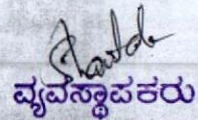 ವ್ಯವಸ್ಥಾಪಕರು